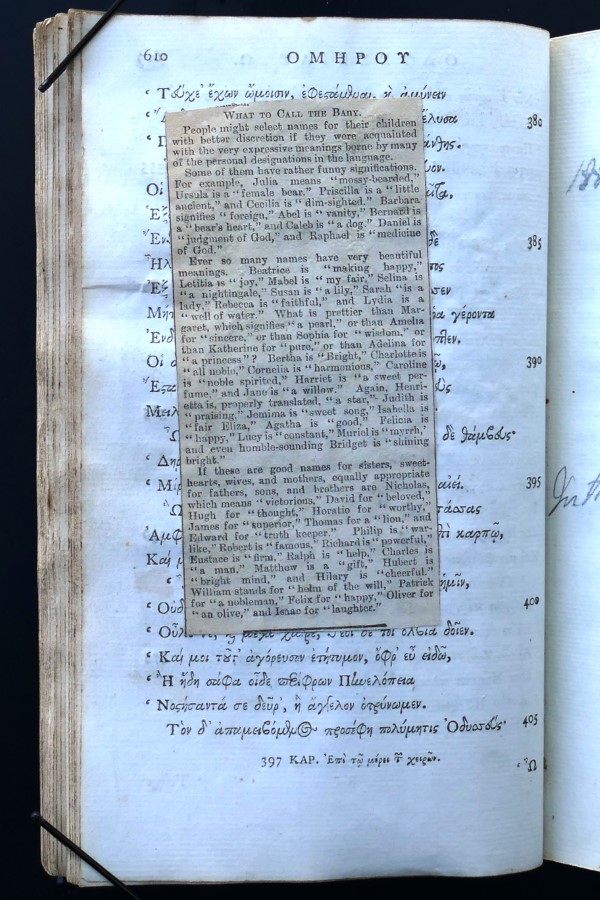 610
ΟΜΗΡΟΥ
WHAT TO CALL THE BABY.
People might select names for their children
with better discretion if they were acquainted
with the very expressive meanings borne by many
of the personal designations in the language.
Some of them have rather funny significations.
For example, Julia means "mossy-bearded,"
Ursula is a "female bear." Priscilla is a "little
ancient," and Cecilia is "dim-sighted." Barbara
signifies "foreign," Abel is "vanity," Bernard is
a "bear's heart," and Caleb is "a dog." Daniel is
"judgment of God," and Raphael is "medicine
of God."
Ever so many names have very beautiful
meanings. Beatrice is "making happy,"
Letitia is "joy," Mabel is "my fair," Selina is
"a nightingale," Susan is "a lily," Sarah "is a
lady," Rebecca is "faithful," and Lydia is a
"well of water." What is prettier than Mar-
garet, which signifies "a pearl," or than Amelia
for "sincere," or than Sophia for "wisdom," or
than Katherine for "pure," or than Adelina for
"a princess"? Bertha is "Bright," Charlotte is
"all noble," Cornelia is "harmonious," Caroline
is "noble spirited," Harriet is "a sweet per-
fume," and Jane is "a willow." Again, Henri-
etta is, properly translated, "a star," Judith is
"praising," Jemima is "sweet song," Isabella is
"fair Eliza," Agatha is "good," Felicia is
"happy," Lucy is "constant," Muriel is "myrrh,"
and even humble-sounding Bridget is "shining
bright."
If these are good names for sisters, sweet-
hearts, wives, and mothers, equally appropriate
for fathers, sons, and brothers are Nicholas,
which means "victorious," David for "beloved,"
Hugh for "thought," Horatio for "worthy,"
James for "superior," Thomas for a "lion," and
Edward for "truth keeper." Philip is "war-
like," Robert is "famous," Richard is "powerful,"
Eustace is "firm," Ralph is "help," Charles is
"a man," Matthew is a "gift," Hubert is
"bright mind," and Hilary is "cheerful."
William stands for "helm of the will," Patrick
for "a nobleman," Felix for "happy," Oliver for
"an olive," and Isaac for "laughter."
380
385
390
δὲ θάμβους·
395
καρπῷ,
400
‘ Καί μοι τοῦτ' ἀγόρευσον ἐτήτυμον, ὄφρ' εὖ εἰδῶ,
‘ Ἢ ἤδη σάφα οἶδε περίφρων Πηνελόπεια
‘ Νοστήσαντά σε δεῦρ', ἢ ἄγγελον ὀτρύνωμεν.
Τὸν δ' ἀπαμειβόμενος προσέφη πολύμητις Ὀδυσσεύς· 405
397 ΚΑΡ. Ἐπὶ τῷ μέρει τ χειρῶν.
‘ Ὦ